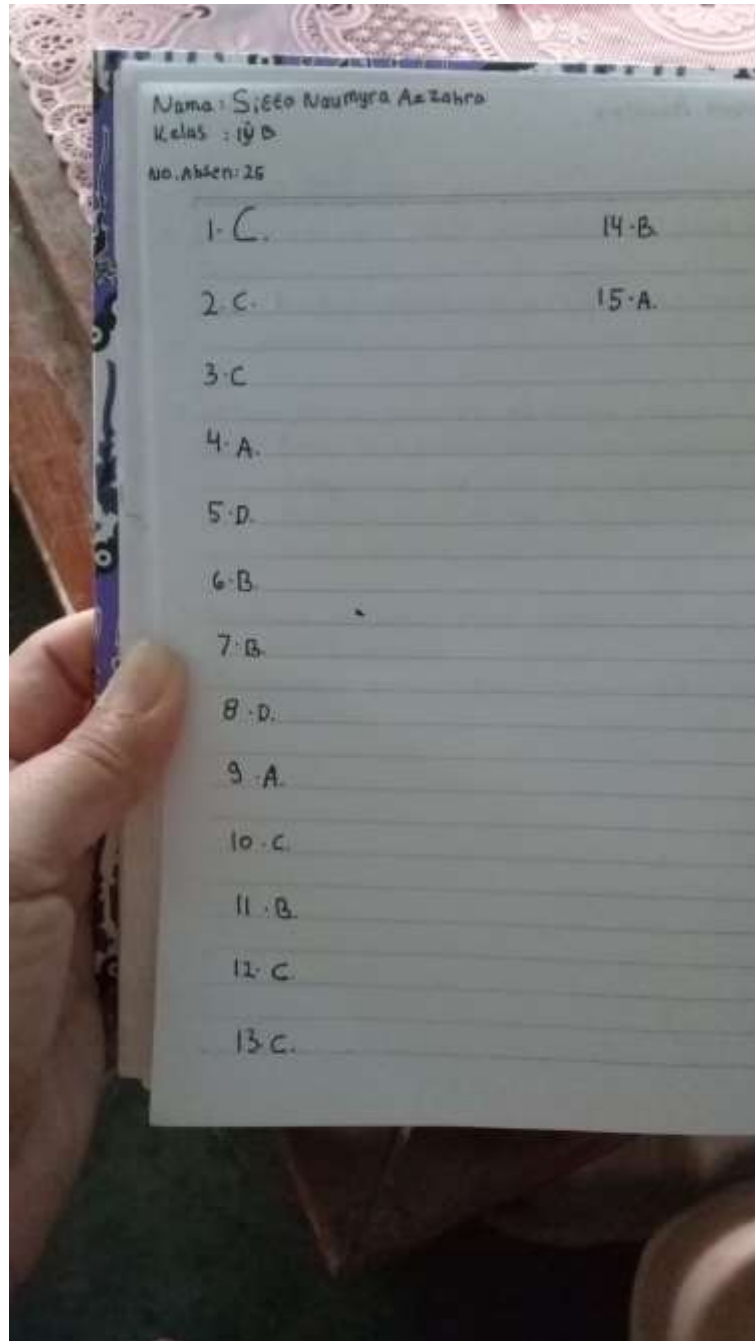 Nama : Sitto Naumyra Azzahra
Kelas : IV B
No. Absen: 25
1. C.
2. C.
3. C
4. A.
5. D.
6. B.
7. B.
8. D.
9. A.
10. C.
11. B.
12. C
13. C.
14. B.
15. A.